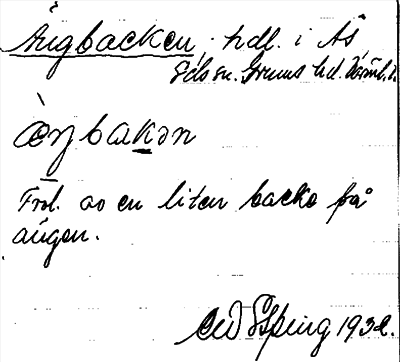 Ängbacken, hdl. i Ås,
Eds sn. Grums hd. Värml. l.
æŋbakən
Förl. av en liten backe på
ängen.
1932.